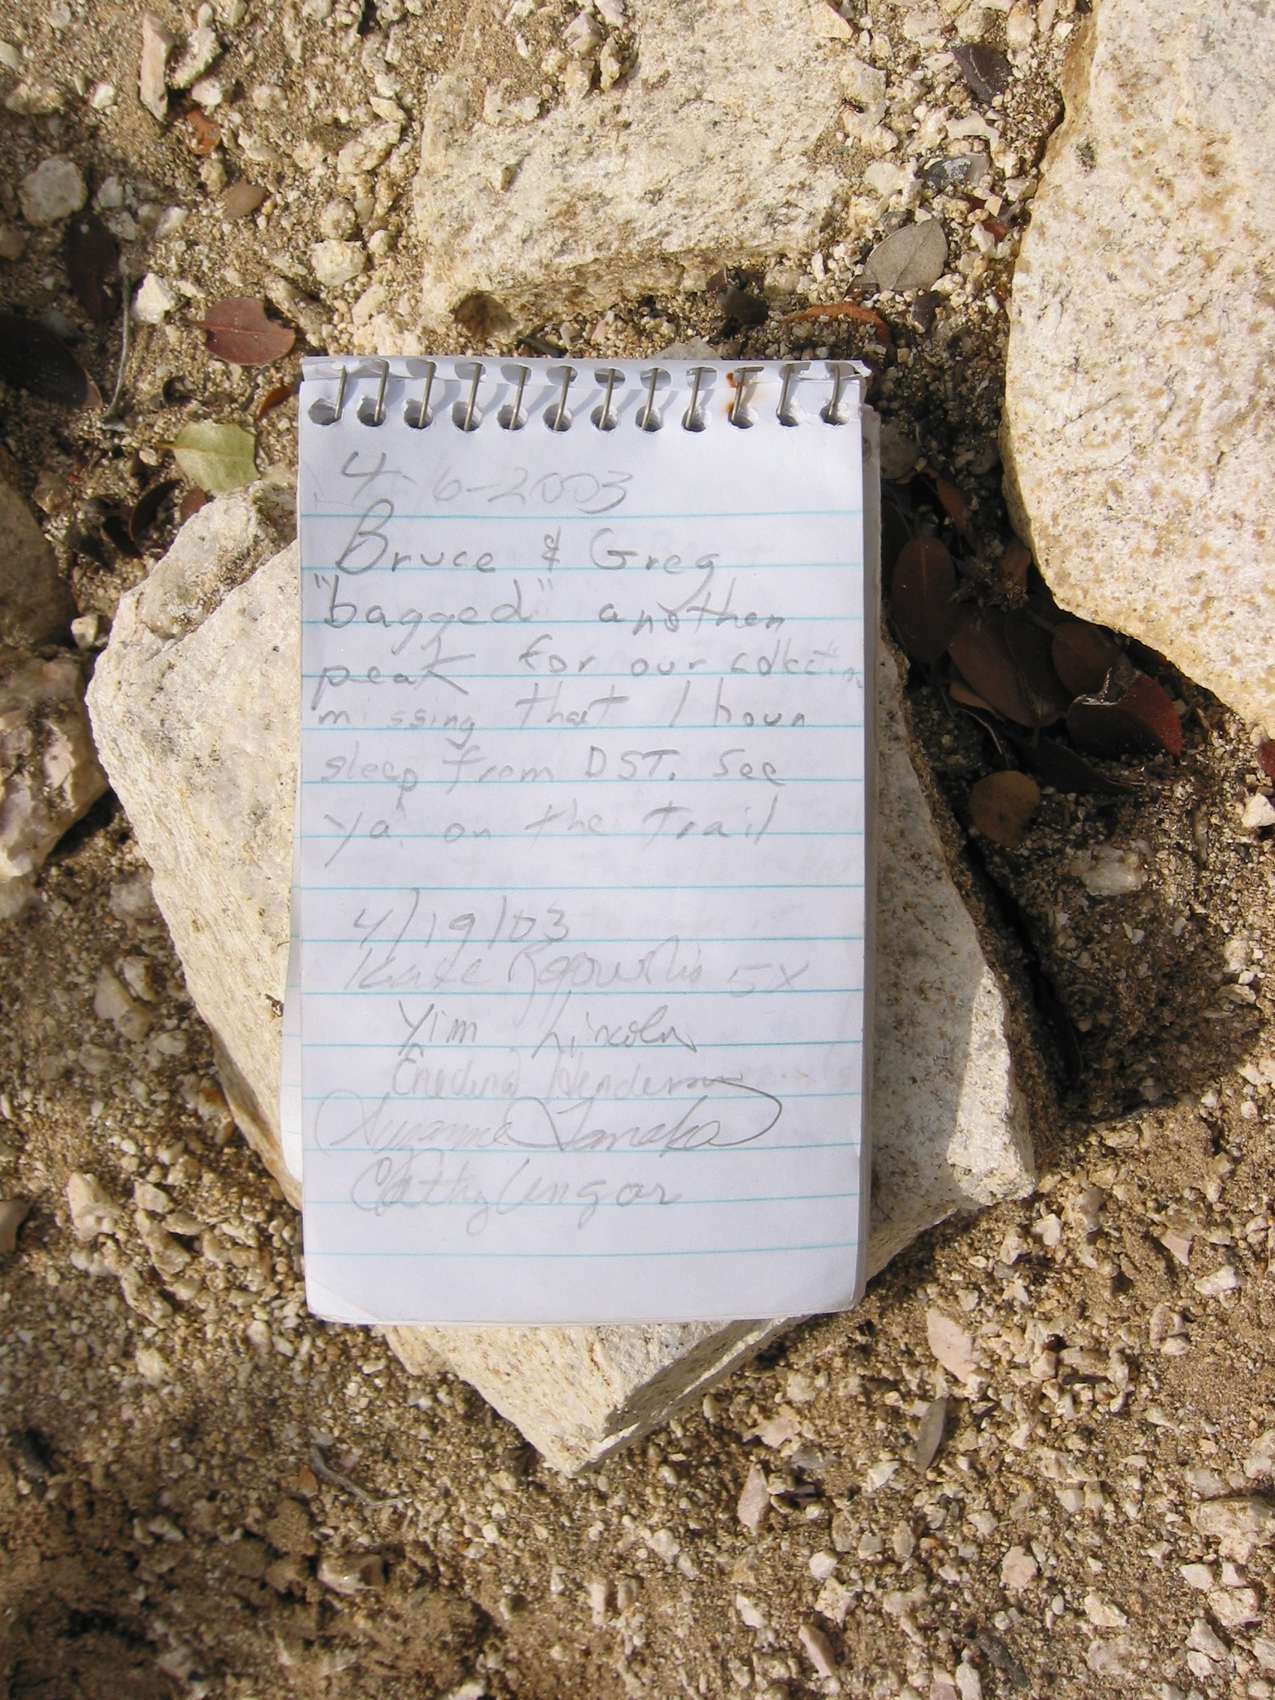 4-6-2003
Bruce & Greg
"bagged" another
peak for our
missing that 1 hour
sleep from DST. See
ya on the trail
4/19/03
5X
Jim Lincoln
Suzanne Tanaka
Cathy Ungar